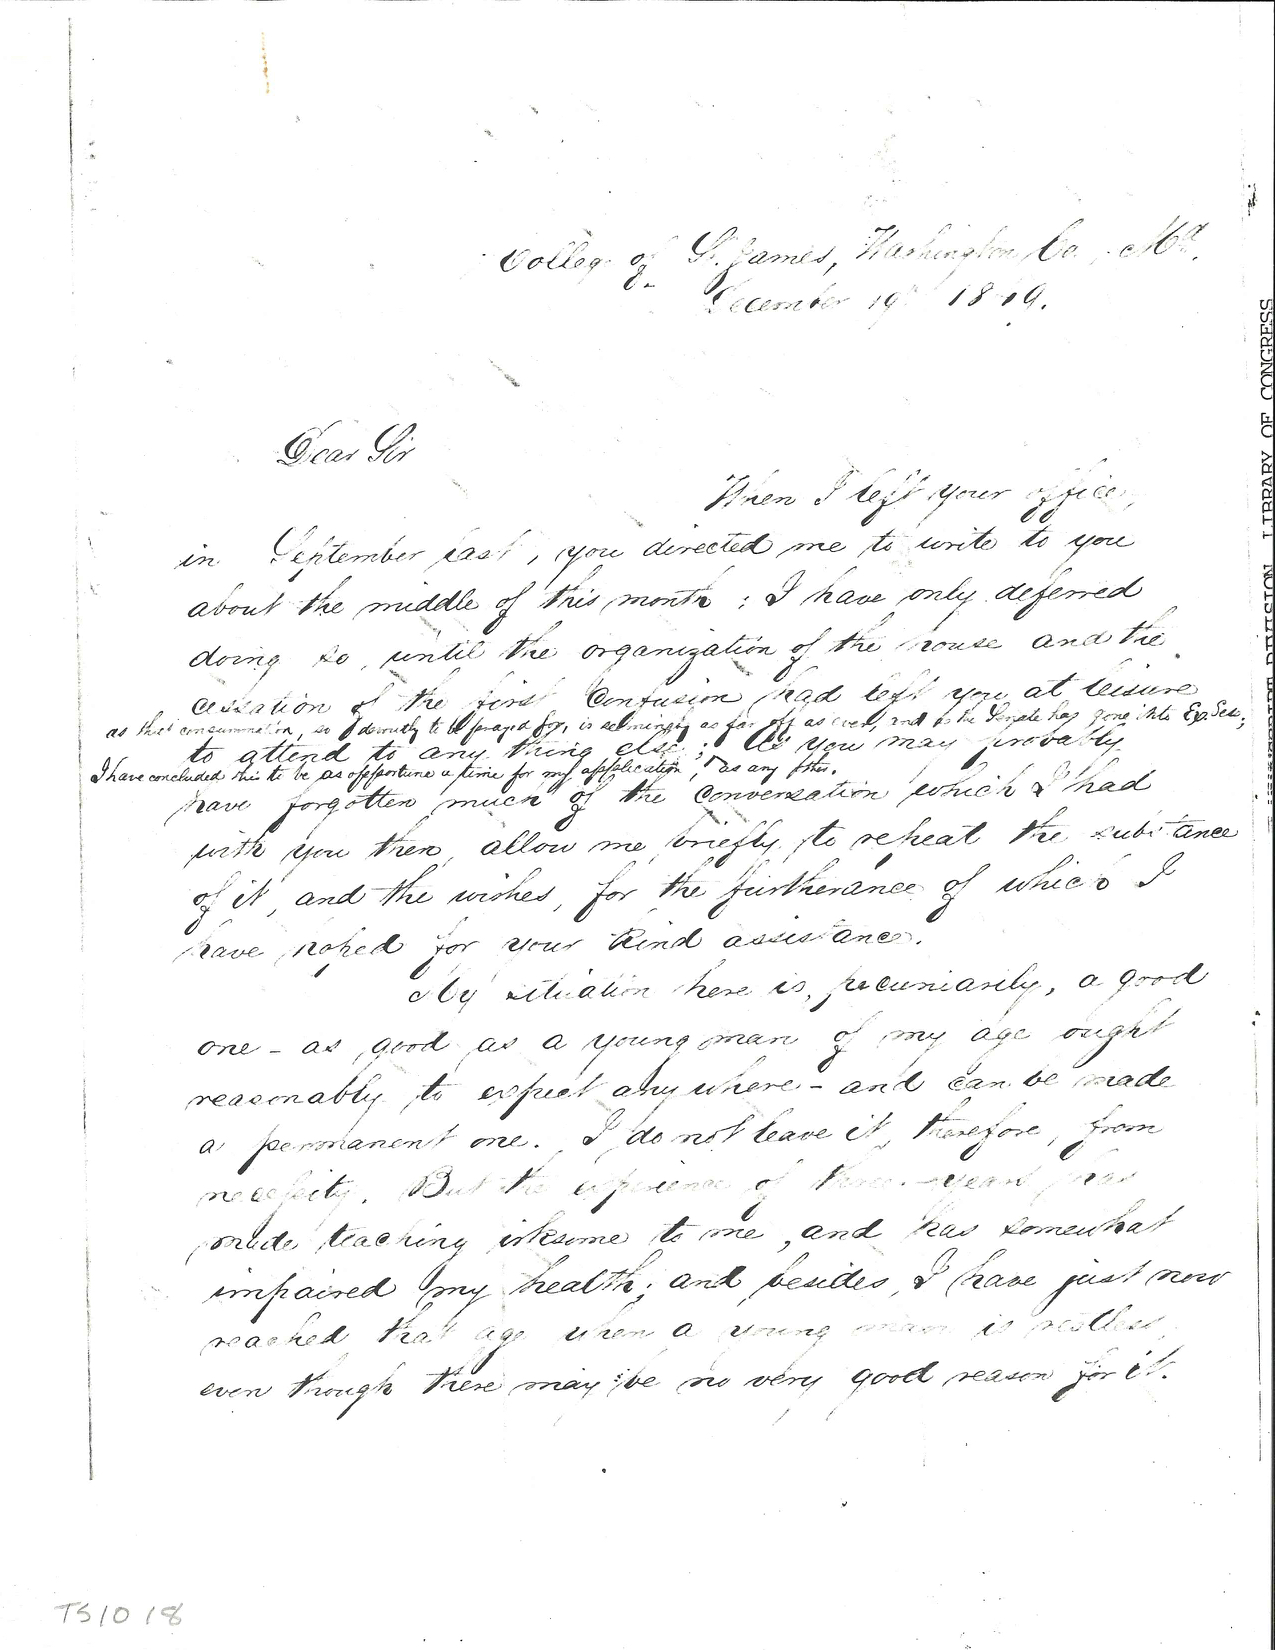 College of St. James, Washington Co., Md.
December 19th 1849.
Dear Sir
When I left your office,
in September last, you directed me to write to you
about the middle of this month: I have only deferred
doing so, until the organization of the house and the
cessation of the first confusion had left you at leisure
as that consummation, so devoutly to be prayed for, is seemingly as far off as ever, and as the Senate has gone into Ex. Ses.;
to attend to any thing else; As you may probably
I have concluded this to be as opportune a time for my application, as any other.
have forgotten much of the conversation which I had
with you then, allow me briefly to repeat the substance
of it, and the wishes, for the furtherance of which I
have hoped for your kind assistance.
My situation here is, pecuniarily, a good
one - as good as a young man of my age ought
reasonably to expect anywhere - and can be made
a permanent one. I do not leave it, therefore, from
necessity. But the experience of three years has
made teaching irksome to me, and has somewhat
impaired my health; and besides, I have just now
reached that age when a young man is restless,
even though there may be no very good reason for it.
LIBRARY OF CONGRESS
MANUSCRIPT DIVISION
TS1018